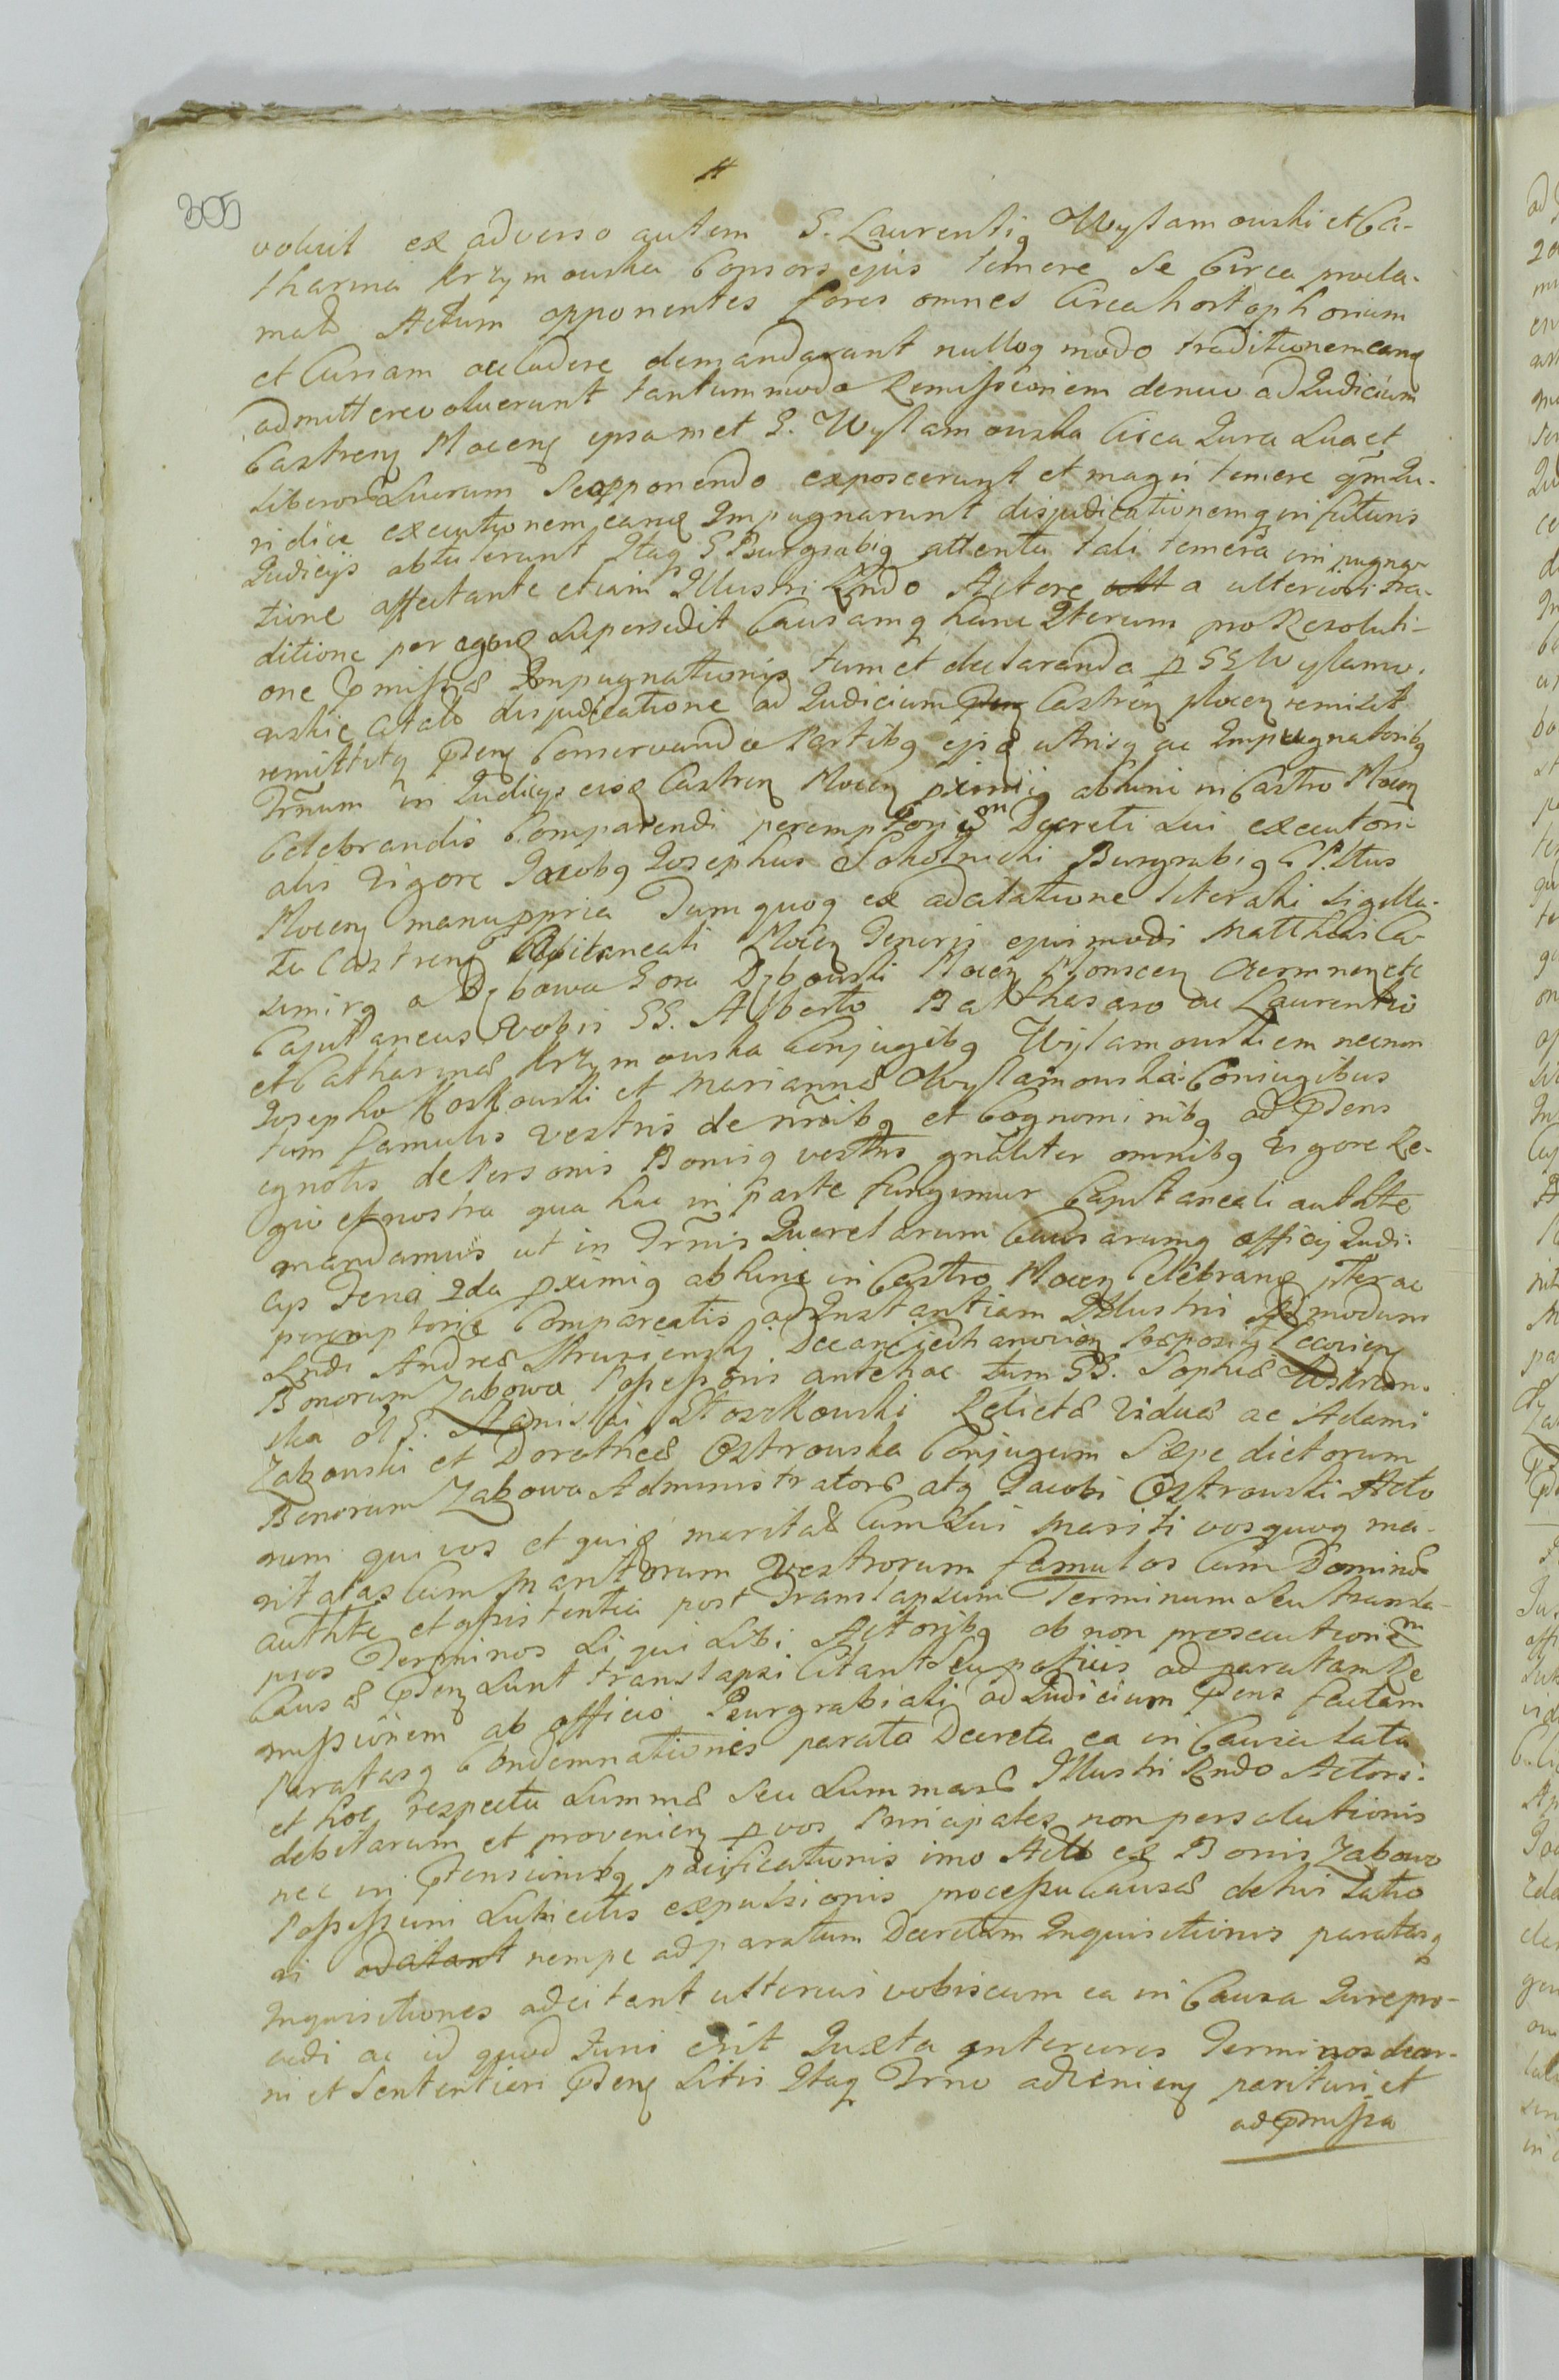 305
voluit ex adverso autem G. Laurentiq Wyslamouski et Ca-
tharina Krzymouska Consors ejus temere se Circa procla-
mat Actum opponentes fores omnes Circa hortop horium
et Curiam occludere demandarunt nulloq modo traditionem eanq
admittere voluerunt tantummodo Remissionem denuo ad Judicium
Castrenq Plocenq ipsamet G. Wyslamouska Circa Jura Sua et
Liberorum Suorum Se opponendo exposcerunt et magis temere qm Ju-
ridice executionem eanq Impugnarunt disjudicationemq in futuris
Judicijs obtulerunt Itaq G Burgrabiq attenta tali temera impugna-
tione affectante etiam Illustri Rndo Actore a ulteriori tra-
ditione peragenq Supersedit Causamq hanc Iterum pro Resoluti-
one pmissae Impugnationis tum et declaranda p GG Wyslamo-
uskie disjudicatione ad Judicium Castrenq plocenq remisit
remittitq pdenq Conservando Partibq ejsq utrisq ac Impugnatoribq
Trnum in Judicijs eisq Castrenq Plocenq pximiq abhinc in Castro Plocenq
Celebrandis Comparendi peremptorium Decreti Sui executori-
alis Vigore Jacobq Josephus Sokolnicki Burgrabiq C Pltus
Plocenq manu ppria Tum quoq ex adcitatione literali sigilla-
ta Castrenq Capitaneali Plocenq Tenoris ejusmodi Matthias Ca-
simirq a Dębowa Gora Dębouski Plocenq etc
Capitaneus Vobis GG. Alberto Balthasaro ac Laurentio
et Catharinae Krzymouska Conjugibq Wyslamouskiem necnon
Josepho Koskouski et Mariannae Wyslamouska Coniugibus
tum famulis vestris de nmibq et Cognominibq ad pdens
ignotis de Personis Bonisq vestris gnaliter omnibq Vigore Re-
gio et nostra qua hac in parte fungimur Capitaneali authte
mandamus ut in Trnis Querelarum Causarumq officij Judi-
cijs Feria 2da pximiq abhinc in Castro Plocenq Celebranq pter ac
peremptorie Compareatis ad Instantiam Illustri Admodum
Rndi Andreae Decani
Bonorum Zabowa Possessoris antehac tum GG. Sophiae
ska ol G. Stanislai Stoszkouski Relictae Viduae ac Adami
Zabouski et Dorotheae Ostrouska Conjugum Saepe dictorum
Bonorum Zabowa Administratorae atq Jacobi Ostrouski Acto
rum qui vos et quiq maritas Cum Sui mariti vos quoq ma-
ritatas Cum Maritorum Vestrorum famulos Cum Dominorum
authte et assistentia post Translapsum Terminum Seu transla-
psos Terminos Si qui Sibi Actoribq ob non prosecutionem
Causae pdenq Sunt translapsi Citant Seu potius ad paratam Re
missionem ab officio Burgrabiali ad Judicium pdens factam
paratasq Condemnationes parata Decreta ea in Causa lata
et hoc respectu Summae Seu Summarum Illustri Rndo Actori
debitarum et provenienq p vos Principales non persolutionis
nec in ptensionibq pacificationis imo Act ex Bonis Zabowo
Possessioni Subiectis expulsionis processu Causae
ri adcitant nempe ad paratum Decretum Inquisitionis paratasq
Inquisitiones adcitant ulterius vobiscum ea in Causa Jure pro-
cedi ac id quod Juris erit Juxta anteriores Terminos decer-
ni et Sententiari pdenq Sitis Itaq Trno advenienq parituri et
ad pmissa